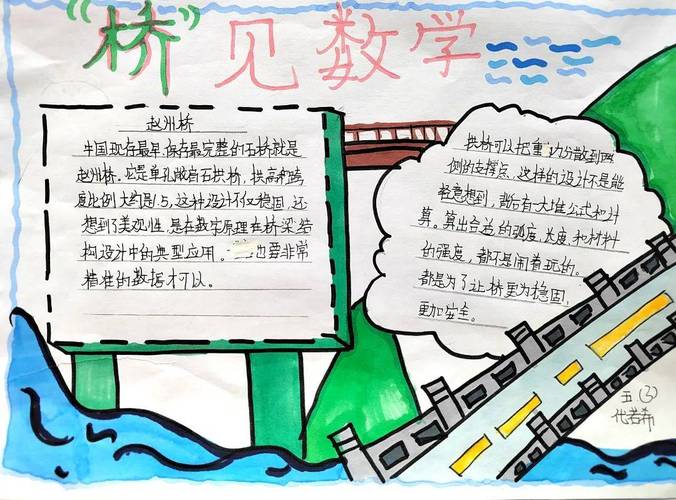 “桥”见数学
赵州桥
中国现存最早、保存最完整的石桥就是
赵州桥。它是单孔敞肩石拱桥，拱高和跨
度比例大约是1:5，这种设计不仅稳固，还
想到了美观性，是在数学原理在桥梁结
构设计中的典型应用。也要非常
精准的数据才可以。
拱桥可以把重力分散到两
侧的支撑点，这样的设计不是能
轻意想到，断后有一大堆公式和计
算。算出合适的弧度、长度和材料
的强度，都不是闹着玩的。
都是为了让桥更为稳固，
更加安全。
五（3）
代若希